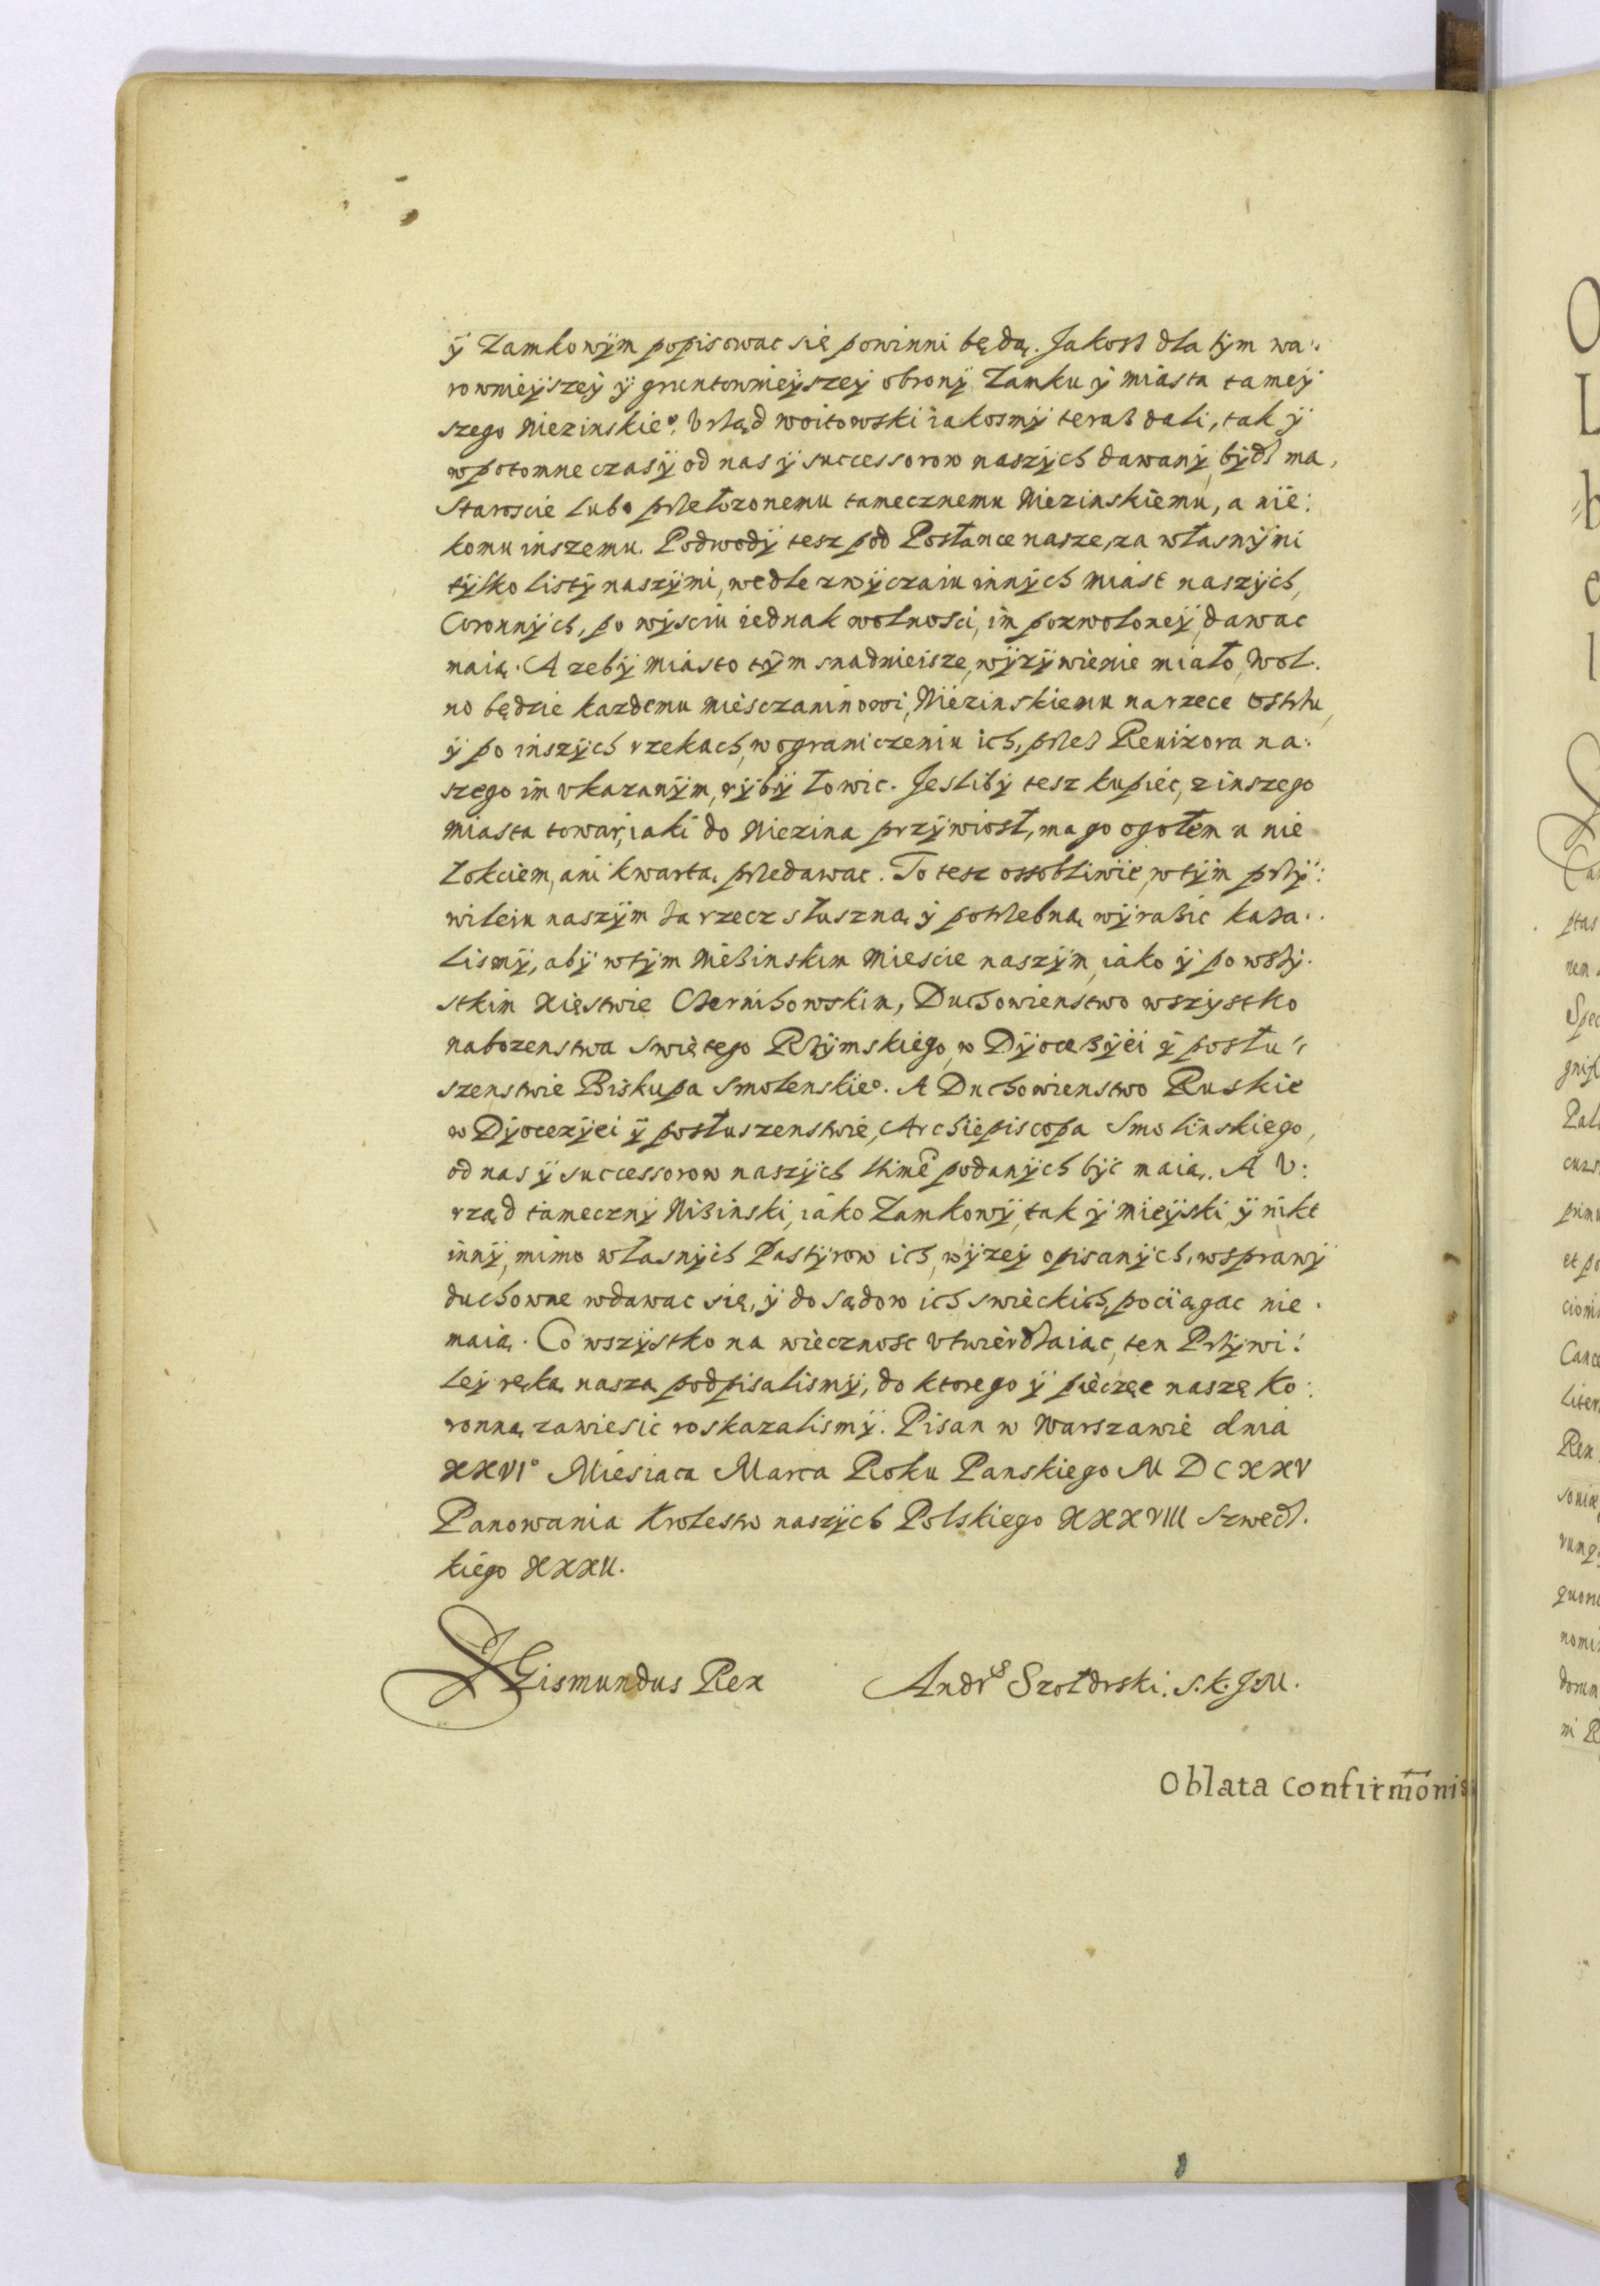 ÿ Zamkowÿm popisowac się powinni będą. Jakosz dla tÿm wa:
rownieÿszeÿ ÿ gruntownieÿszeÿ obronÿ Zamku ÿ miasta tameÿ
szego Niezinskieº. Vrząd woitowski iakosmÿ terasz dali, tak ÿ
w potomne czasÿ od nas ÿ successorow naszÿch dawanÿ bÿdz ma,
Staroscie lubo przełozonemu tamecznemu Niezinskiemu, a nie:
komu inszemu. Podwodÿ tesz pod Posłance nasze, za własnÿmi
tÿlko listÿ naszÿmi, wedle zwÿczaiu innÿch miast naszÿch,
Coronnÿch, po wÿsciu iednak wolnosci, im pozwoloneÿ, dawac
maią. A zebÿ miasto tÿm snadnieisze, wÿzÿwienie miało, wol.
no będzie kazdemu miesczaninowi, Niezinskiemu na rzece Ostrzu,
ÿ po inszÿch rzekach, w ograniczeniu ich, przesz Reuizora na.
szego im vkazanÿm, rÿbÿ łowic. Jeslibÿ tesz kupiec, z inszego
miasta towar, iaki do Niezina przÿwiosł, ma go ogołem a nie
łokciem, ani kwartą, przedawac. To tesz ossobliwie, w tÿm przÿ:
wileiu naszÿm za rzecz słuszną ÿ potrzebną wÿrazic kaza..
lismÿ, abÿ w tÿm Niezinskim Miescie naszÿm, iako ÿ po wszÿ.
stkim Xięstwie Czernihowskim, Duchowienstwo wszÿstko
nabozenstwa swiętego Rzÿmskiego, w Dÿocezÿei ÿ posłu:
szenstwie Biskupa Smolenskieº. A Duchowienstwo Ruskie
w Dÿocezÿei ÿ posłuszenstwie, Archiepiscopa Smolinskiego,
od nas ÿ successorow naszÿch podanÿch bÿc maią. A V:
rząd tamecznÿ Nizinski, iako Zamkowÿ, tak ÿ mieÿski, ÿ nikt
innÿ, mimo własnÿch Pastÿrow ich, wÿzeÿ opisanÿch, w sprawÿ
duchowne wdawac się, ÿ do sądow ich swieckich, pociągac nie.
maią. Co wszÿstko na wiecznosc vtwierdzaiąc, ten Przÿwi:
leÿ ręką naszą podpisalismÿ, do ktorego ÿ pieczęc naszę Ko:
ronną zawiesic roskazalismÿ. Pisan w Warszawie dnia
XXVIº Miesiaca Marca Roku Panskiego M DCXXV
Panowania Krolestw naszÿch Polskiego XXXVIII Szwedz.
kiego XXXII.
Zÿgismundus Rex Andrˢ Szołdrski. S. K. J. M.
Oblata Confirm̄onis